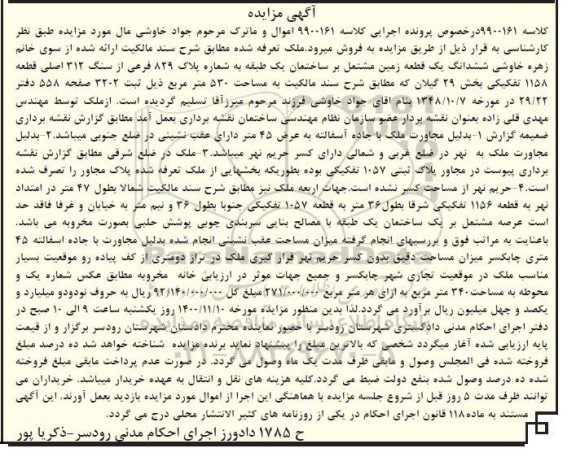 آگهی مزایده
کلاسه ۹۹۰۰۱۶۱درخصوص پرونده اجرایی کلاسه ۹۹۰۰۱۶۱ اموال و ماترک مرحوم جواد خاوشی مال مورد مزایده طبق نظر
کارشناسی به قرار ذیل از طریق مزایده به فروش میرود.ملک تعرفه شده مطابق شرح سند مالکیت ارائه شده از سوی خانم
زهره خاوشی ششدانگ یک قطعه زمین مشتمل بر ساختمان یک طبقه به شماره پلاک ۸۲۹ فرعی از سنگ ۳۱۲ اصلی قطعه
۱۱۵۸ تفکیکی بخش ۲۹ گیلان که مطابق شرح سند مالکیت به مساحت ۵۳۰ متر مربع ذیل ثبت ۳۲۰۲ صفحه ۵۵۸ دفتر
۲۹/۲۲ در مورخه ۱۳۴۸/۱۰/۷ بنام آقای جواد خاوشی فرزند مرحوم میرزآقا تسلیم گردیده است. ازملک توسط مهندس
مهدی قلی زاده بعنوان نقشه بردار عضو سازمان نظام مهندسی ساختمان نقشه برداری بعمل آمد مطابق گزارش نقشه برداری
ضمیمه گزارش ۱-بدلیل مجاورت ملک با جاده آسفالته به عرض ۴۵ متر دارای عقب نشینی در ضلع جنوبی میباشد.۲-بدلیل
مجاورت ملک به نهر در ضلع غربی و شمالی دارای کسر حریم نهر میباشد.۳-ملک در ضلع شرقی مطابق گزارش نقشه
برداری پیوست در مجاور پلاک ثبتی ۱۰۵۷ تفکیکی بوده بطوریکه بخشهایی از ملک تعرفه شده پلاک مجاور را تصرف شده
است.۴-حریم نهر از مساحت کسر نشده است.جهات اربعه ملک نیز مطابق شرح سند مالکیت شمالا بطول ۴۷ متر در امتداد
نهر به قطعه ۱۱۵۶ تفکیکی شرقا بطول۳۶ متر به قطعه ۱۰۵۷ تفکیکی جنوبا بطول ۳۶ و نیم متر به خیابان و غرفا فاقد حد
است عرصه مشتمل بر یک ساختمان یک طبقه با مصالح بنایی سربندی چوبی پوشش حلبی بصورت مخروبه می باشد.
باعنایت به مراتب فوق و بررسیهای انجام گرفت میزان مساحت عقب نشینی انجام شده بدلیل مجاورت با جاده اسفالته ۴۵
متری چابکسر میزان مساحت دقیق بدون کسر حریم نهر قرار گیری ملک در تراز دومتری از کف پیاده رو موقعیت بسیار
مناسب ملک در موقعیت تجاری شهر چابکسر و جمیع جهات موثر در ارزیابی خانه مخروبه مطابق عکس شماره یک و
محوطه به مساحت۳۴۰ متر مربع به ازای هر متر مربع ۲۷۱/۰۰۰/۰۰۰ مبلغ کل ۹۲/۱۴۰/۰۰۰/۰۰۰ریال به حروف نودودو میلیارد و
یکصد و چهل میلیون ریال برآورد می گردد.لذا بدین منظور مزایده مورخه ۱۴۰۰/۱۱/۱۰ روز یکشنبه ساعت ۹ الی ۱۰ صبح در
دفتر اجرای احکام مدنی دادگستری شهرستان رودسر با حضور نماینده محترم دادستان شهرستان رودسر برگزار و از قیمت
پایه ارزیابی شده آغاز میگردد شخصی که بالاترین مبلغ را پیشنهاد نماید برنده مزایده شناخته خواهد شد ده درصد مبلغ
فروخته شده فی المجلس وصول و مابقی ظرف مدت یک ماه وصول می گردد. در صورت عدم پرداخت مابقی مبلغ فروخته
شده ده درصد وصول شده بنفع دولت ضبط می گردد.کلیه هزینه های نقل و انتقال به عهده خریدار میباشد. خریداران می
توانند ظرف مدت ۵ روز قبل از شروع جلسه مزایده با هماهنگی این اجرا از اموال مورد مزایده بازدید بعمل آورند. این آگهی
مستند به ماده۱۱۸ قانون اجرای احکام در یکی از روزنامه های کثیر الانتشار محلی درج می گردد.
ح ۱۷۸۵ دادورز اجرای احکام مدنی رودسر-ذکریا پور